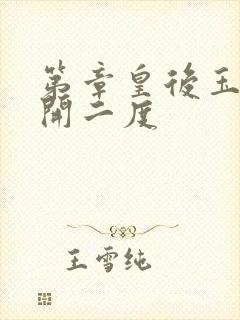 第章皇後玉
開二度
王雪纯